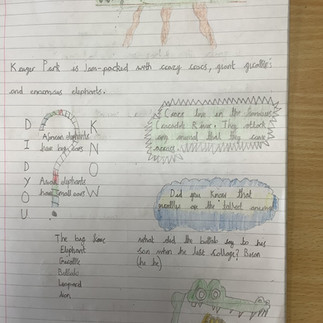 Kruger Park is Jam-packed with crazy crocs, giant giraffes
and enormous elephants.
DID YOU
KNOW
African elephants
have big ears
Asian elephants
have small ears
Crocs live in the famous
Crocodile River. They attack
any animal that they
Did you know that
the tallest
The big five
Elephant
Buffalo
Leopard
Lion
what did the buffalo say to his
son when he left college? Bison
(he he)